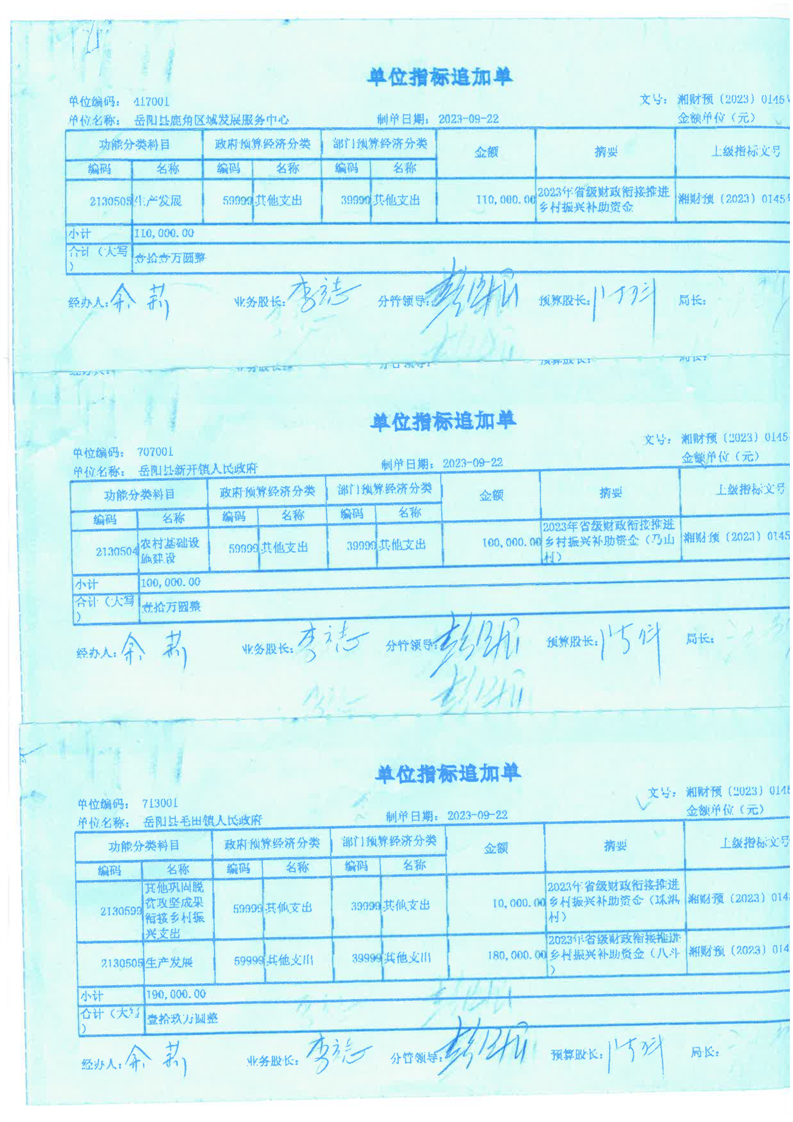 单位指标追加单
单位编码: 417001 文号: 湘财预(2023)0145
单位名称: 岳阳县鹿角区域发展服务中心 制单日期: 2023-09-22 金额单位(元)
功能分类科目 政府预算经济分类 部门预算经济分类 金额 摘要 上级指标文号
编码 名称 编码 名称 编码 名称
2130505 生产发展 59999 其他支出 39999 其他支出 110,000.00 2023年省级财政衔接推进乡村振兴补助资金 湘财预(2023)0145
小计 110,000.00
合计(大写) 壹拾壹万圆整
经办人: 余莉 业务股长: 李志 分管领导: 预算股长: 局长:
单位指标追加单
单位编码: 707001 文号: 湘财预(2023)0145
单位名称: 岳阳县新开镇人民政府 制单日期: 2023-09-22 金额单位(元)
功能分类科目 政府预算经济分类 部门预算经济分类 金额 摘要 上级指标文号
编码 名称 编码 名称 编码 名称
2130504 农村基础设施建设 59999 其他支出 39999 其他支出 100,000.00 2023年省级财政衔接推进乡村振兴补助资金(乃山村) 湘财预(2023)0145
小计 100,000.00
合计(大写) 壹拾万圆整
经办人: 余莉 业务股长: 李志 分管领导: 预算股长: 局长:
单位指标追加单
单位编码: 713001 文号: 湘财预(2023)014
单位名称: 岳阳县毛田镇人民政府 制单日期: 2023-09-22 金额单位(元)
功能分类科目 政府预算经济分类 部门预算经济分类 金额 摘要 上级指标文号
编码 名称 编码 名称 编码 名称
2130599 其他巩固脱贫攻坚成果衔接乡村振兴支出 59999 其他支出 39999 其他支出 10,000.00 2023年省级财政衔接推进乡村振兴补助资金 村) 湘财预(2023)014
2130505 生产发展 59999 其他支出 39999 其他支出 180,000.00 2023年省级财政衔接推进乡村振兴补助资金(八斗) 湘财预(2023)014
小计 190,000.00
合计(大写) 壹拾玖万圆整
经办人: 余莉 业务股长: 李志 分管领导: 预算股长: 局长: